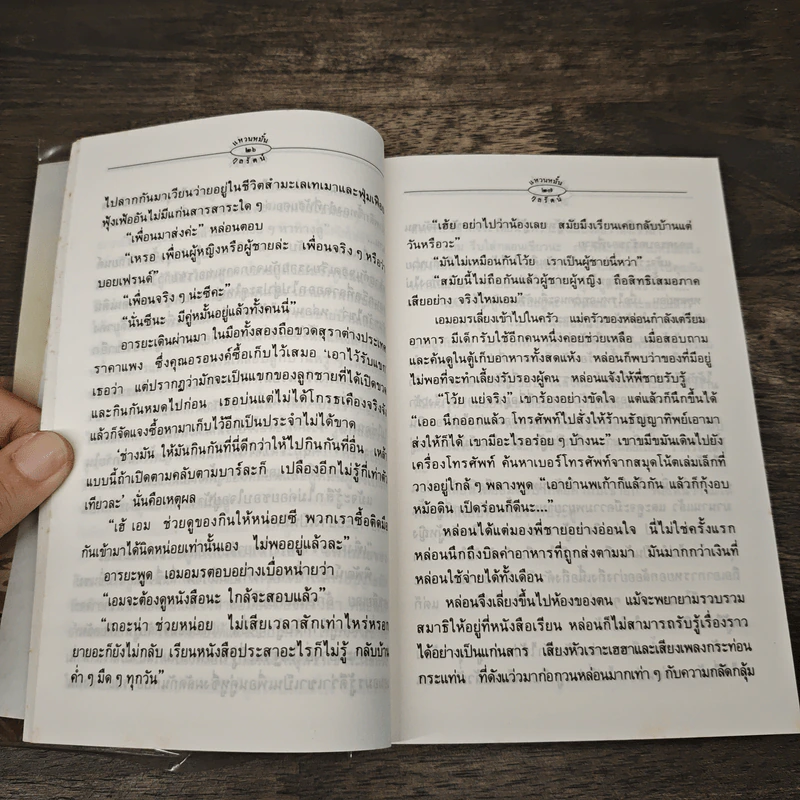 แหวนหมั้น
๒๖
วลีรัตน์
ไปลากกันมาเวียนว่ายอยู่ในชีวิตสำมะเลเทเมาและฟุ่มเฟือย
ฟุ้งเฟ้ออันไม่มีแก่นสารสาระใด ๆ
“เพื่อนมาส่งค่ะ” หล่อนตอบ
“เหรอ เพื่อนผู้หญิงหรือผู้ชายล่ะ เพื่อนจริง ๆ หรือว่า
บอยเฟรนด์”
“เพื่อนจริง ๆ น่ะซีคะ”
“นั่นซีนะ มีคู่หมั้นอยู่แล้วทั้งคนนี่”
อารยะเดินผ่านมา ในมือทั้งสองถือขวดสุราต่างประเทศ
ราคาแพง ซึ่งคุณอรอนงค์ซื้อเก็บไว้เสมอ ‘เอาไว้รับแขก’
เธอว่า แต่ปรากฏว่ามักจะเป็นแขกของลูกชายที่ได้เปิดขวด
และกินกันหมดไปก่อน เธอบ่นแต่ไม่ได้โกรธเคืองจริงจัง
แล้วก็จัดแจงซื้อหามาเก็บไว้อีกเป็นประจำไม่ได้ขาด
‘ช่างมัน ให้มันกินกันที่นี่ดีกว่าให้ไปกินกันที่อื่น เหล้า
แบบนี้ถ้าเปิดตามคลับตามบาร์ละก็ เปลืองอีกไม่รู้กี่เท่าตัว
เทียวละ’ นั่นคือเหตุผล
“เฮ้ เอม ช่วยดูของกินให้หน่อยซี พวกเราซื้อติดมือ
กันเข้ามาได้นิดหน่อยเท่านั้นเอง ไม่พออยู่แล้วละ”
อารยะพูด เอมอมรตอบอย่างเบื่อหน่ายว่า
“เอมจะต้องดูหนังสือนะ ใกล้จะสอบแล้ว”
“เถอะน่า ช่วยหน่อย ไม่เสียเวลาสักเท่าไหร่หรอก
ยายอะก็ยังไม่กลับ เรียนหนังสือประสาอะไรก็ไม่รู้ กลับบ้าน
ค่ำ ๆ มืด ๆ ทุกวัน”
แหวนหมั้น
๒๗
วลีรัตน์
“เฮ้ย อย่าไปว่าน้องเลย สมัยมึงเรียนเคยกลับบ้านแต่
วันหรือวะ”
“มันไม่เหมือนกันโว้ย เราเป็นผู้ชายนี่หว่า”
“สมัยนี้ไม่ถือกันแล้วผู้ชายผู้หญิง ถือสิทธิเสมอภาค
เสียอย่าง จริงไหมเอม”
เอมอมรเลี่ยงเข้าไปในครัว แม่ครัวของหล่อนกำลังเตรียม
อาหาร มีเด็กรับใช้อีกคนหนึ่งคอยช่วยเหลือ เมื่อสอบถาม
และค้นดูในตู้เก็บอาหารทั้งสดแห้ง หล่อนก็พบว่าของที่มีอยู่
ไม่พอที่จะทำเลี้ยงรับรองผู้คน หล่อนแจ้งให้พี่ชายรับรู้
“โว้ย แย่จริง” เขาร้องอย่างขัดใจ แต่แล้วก็นึกขึ้นได้
“เออ นึกออกแล้ว โทรศัพท์ไปสั่งให้ร้านธัญญาทิพย์เอามา
ส่งให้ก็ได้ เขามีอะไรอร่อย ๆ บ้างนะ” เขาขมีขมันเดินไปยัง
เครื่องโทรศัพท์ ค้นหาเบอร์โทรศัพท์จากสมุดโน้ตเล่มเล็กที่
วางอยู่ใกล้ ๆ พลางพูด “เอายำนพเก้าก็แล้วกัน แล้วก็กุ้งอบ
หม้อดิน เป็ดร่อนก็ดีนะ...”
หล่อนได้แต่มองพี่ชายอย่างอ่อนใจ นี่ไม่ใช่ครั้งแรก
หล่อนนึกถึงบิลค่าอาหารที่ถูกส่งตามมา มันมากกว่าเงินที่
หล่อนใช้จ่ายได้ทั้งเดือน
หล่อนจึงเลี่ยงขึ้นไปห้องของตน แม้จะพยายามรวบรวม
สมาธิให้อยู่ที่หนังสือเรียน หล่อนก็ไม่สามารถรับรู้เรื่องราว
ได้อย่างเป็นแก่นสาร เสียงหัวเราะเฮฮาและเสียงเพลงกระท่อน
กระแท่น ที่ดังแว่วมาก่อกวนหล่อนมากเท่า ๆ กับความกลัดกลุ้ม